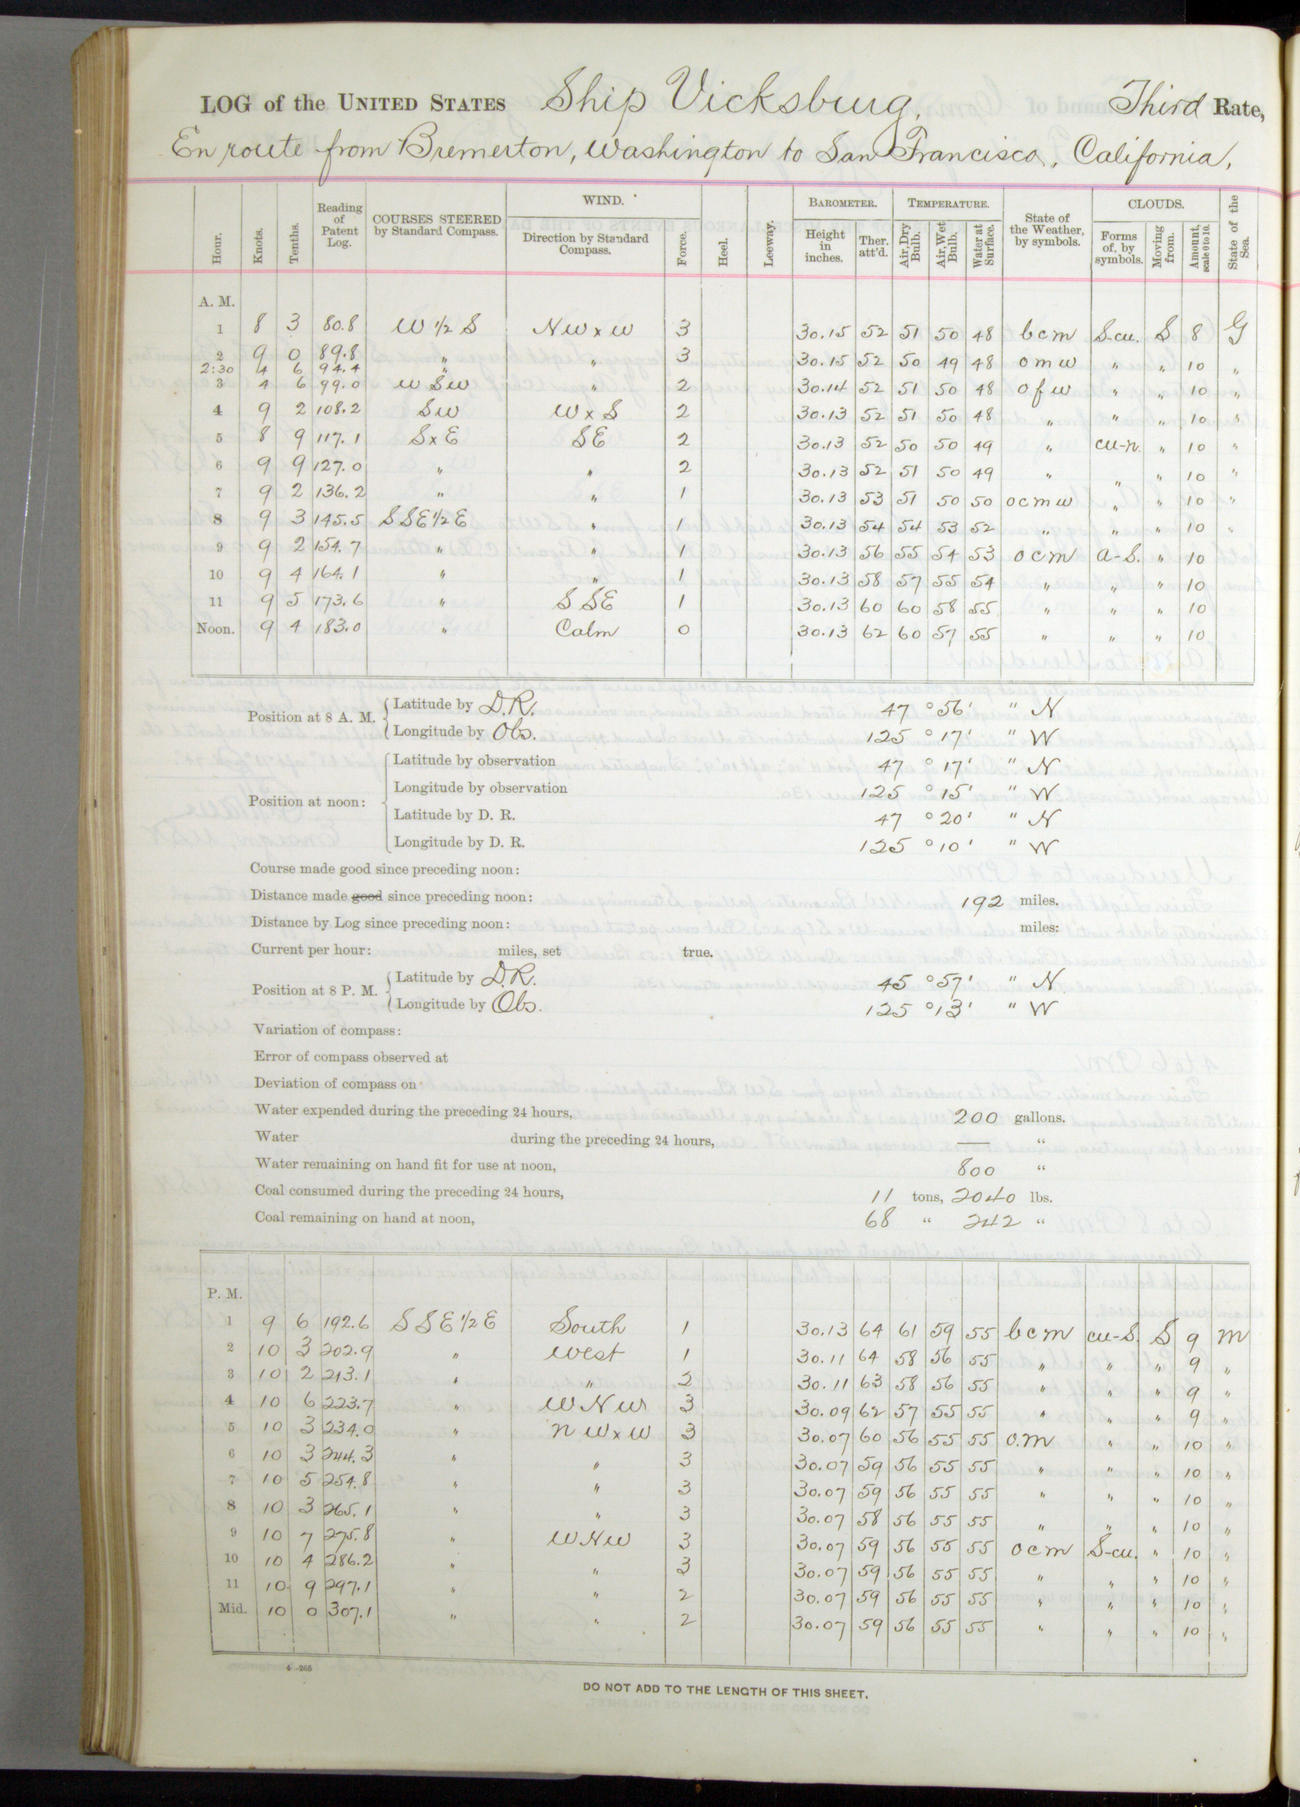 LOG of the UNITED STATES Ship Vicksburg, Third Rate,
En route from Bremerton, Washington to San Francisco, California,
Hour. Knots. Tenths. Reading of Patent Log. COURSES STEERED by Standard Compass. WIND. Direction by Standard Compass. Force. Heel. Leeway. BAROMETER. Height in inches. Ther. att'd. TEMPERATURE. Air, Dry Bulb. Air, Wet Bulb. Water at Surface. State of the Weather, by symbols. CLOUDS. Forms of, by symbols. Moving from. Amount, scale 0 to 10. State of the Sea.
A. M.
1 8 3 80.8 W 1/2 S NW x W 3 30.15 52 51 50 48 bcm S-cu. S 8 G
2 9 0 89.8 " " 3 30.15 52 50 49 48 omw " " 10 "
2:30 4 6 94.4 "
3 4 6 99.0 WSW " 2 30.14 52 51 50 48 ofw " " 10 "
4 9 2 108.2 SW W x S 2 30.13 52 51 50 48 " " " 10 "
5 8 9 117.1 S x E SE 2 30.13 52 50 50 49 " cu-n. " 10 "
6 9 9 127.0 " " 2 30.13 52 51 50 49 " " " 10 "
7 9 2 136.2 " " 1 30.13 53 51 50 50 ocmw " " 10 "
8 9 3 145.5 SSE 1/2 E " 1 30.13 54 54 53 52 " " " 10 "
9 9 2 154.7 " " 1 30.13 56 55 54 53 ocm a-S. " 10
10 9 4 164.1 " " 1 30.13 58 57 55 54 " " " 10
11 9 5 173.6 " SSE 1 30.13 60 60 58 55 " " " 10
Noon. 9 4 183.0 " Calm 0 30.13 62 60 57 55 " " " 10
Position at 8 A. M. Latitude by D.R. 47 ° 56' " N
Longitude by Obs. 125 ° 17' " W
Position at noon: Latitude by observation 47 ° 17' " N
Longitude by observation 125 ° 15' " W
Latitude by D. R. 47 ° 20' " N
Longitude by D. R. 125 ° 10' " W
Course made good since preceding noon:
Distance made good since preceding noon: 192 miles.
Distance by Log since preceding noon: miles:
Current per hour: miles, set true.
Position at 8 P. M. Latitude by D.R. 45 ° 57' " N
Longitude by Obs. 125 ° 13' " W
Variation of compass:
Error of compass observed at
Deviation of compass on
Water expended during the preceding 24 hours, 200 gallons.
Water during the preceding 24 hours, — "
Water remaining on hand fit for use at noon, 800 "
Coal consumed during the preceding 24 hours, 11 tons, 2040 lbs.
Coal remaining on hand at noon, 68 " 242 "
P. M.
1 9 6 192.6 SSE 1/2 E South 1 30.13 64 61 59 55 bcm cu-S. S 9 m
2 10 3 202.9 " West 1 30.11 64 58 56 55 " " " 9 "
3 10 2 213.1 " " 2 30.11 63 58 56 55 " " " 9 "
4 10 6 223.7 " WNW 3 30.09 62 57 55 55 " " " 9 "
5 10 3 234.0 " NW x W 3 30.07 60 56 55 55 o.m " " 10 "
6 10 3 244.3 " " 3 30.07 59 56 55 55 " " " 10 "
7 10 5 254.8 " " 3 30.07 59 56 55 55 " " " 10 "
8 10 3 265.1 " " 3 30.07 58 56 55 55 " " " 10 "
9 10 7 275.8 " WNW 3 30.07 59 56 55 55 ocm S-cu. " 10 "
10 10 4 286.2 " " 3 30.07 59 56 55 55 " " " 10 "
11 10 9 297.1 " " 2 30.07 59 56 55 55 " " " 10 "
Mid. 10 0 307.1 " " 2 30.07 59 56 55 55 " " " 10 "
4—265
DO NOT ADD TO THE LENGTH OF THIS SHEET.